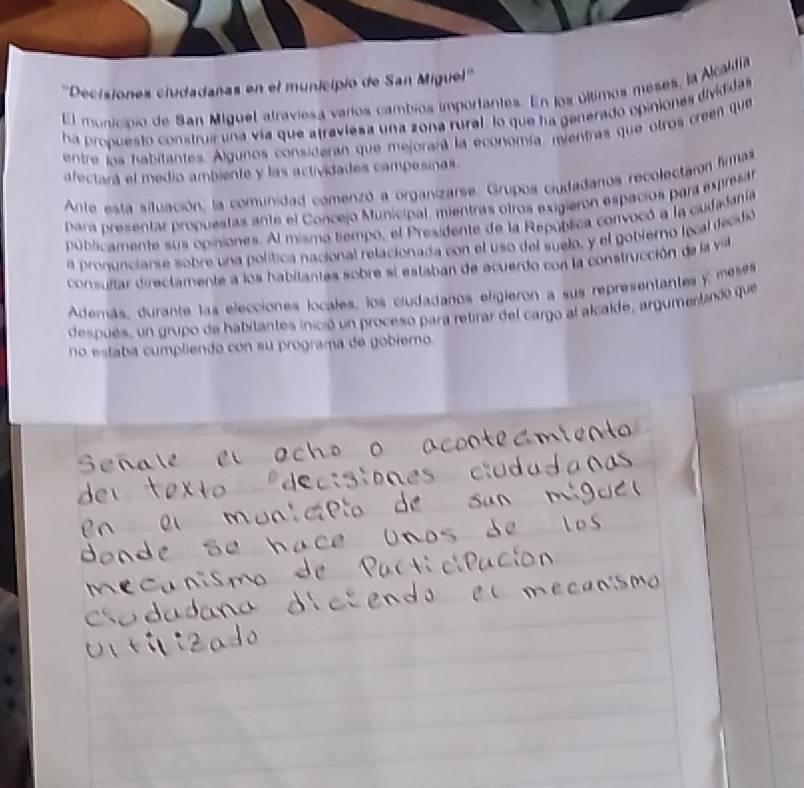 "Decisiones ciudadanas en el municipio de San Miguel"
El municipio de San Miguel atraviesa varios cambios importantes. En los últimos meses, la Alcaldía
ha propuesto construir una vía que atraviesa una zona rural, lo que ha generado opiniones divididas
entre los habitantes. Algunos consideran que mejorará la economía, mientras que otros creen que
afectará el medio ambiente y las actividades campesinas.
Ante esta situación, la comunidad comenzó a organizarse. Grupos ciudadanos recolectaron firmas
para presentar propuestas ante el Concejo Municipal, mientras otros exigieron espacios para expresar
públicamente sus opiniones. Al mismo tiempo, el Presidente de la República convocó a la ciudadanía
a pronunciarse sobre una política nacional relacionada con el uso del suelo, y el gobierno local decidió
consultar directamente a los habitantes sobre si estaban de acuerdo con la construcción de la vía
Además, durante las elecciones locales, los ciudadanos eligieron a sus representantes y, meses
después, un grupo de habitantes inició un proceso para retirar del cargo al alcalde, argumentando que
no estaba cumpliendo con su programa de gobierno.
Señale el acho o aconteamiento
del texto "decisiones ciudadanas
en el municipio de san miguel
donde se hace unos de los
mecanismo de Participacion
ciudadana diciendo el mecanismo
ultilizado